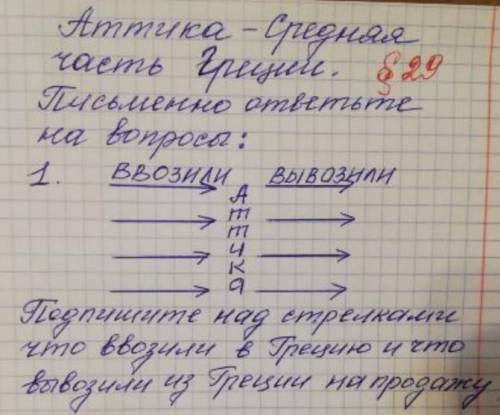 Аттика – Средняя
часть Греции. § 29
Письменно ответьте
на вопросы:
1. ВВОЗИЛИ ВЫВОЗИЛИ
А
т
т
и
к
а
Подпишите над стрелками
что ввозили в Грецию и что
вывозили из Греции на продажу